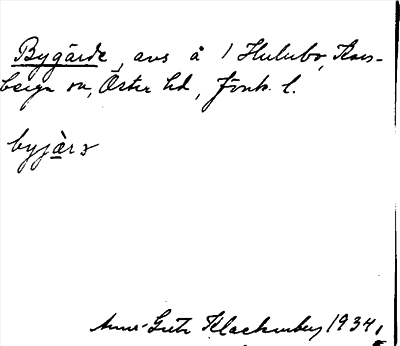 Bygärde, avs å 1 Hulubo, Kors-
berga sn, Öster hd, Jönk. l.
byjàrɜ
Anna-Greta Klackenberg 1934.